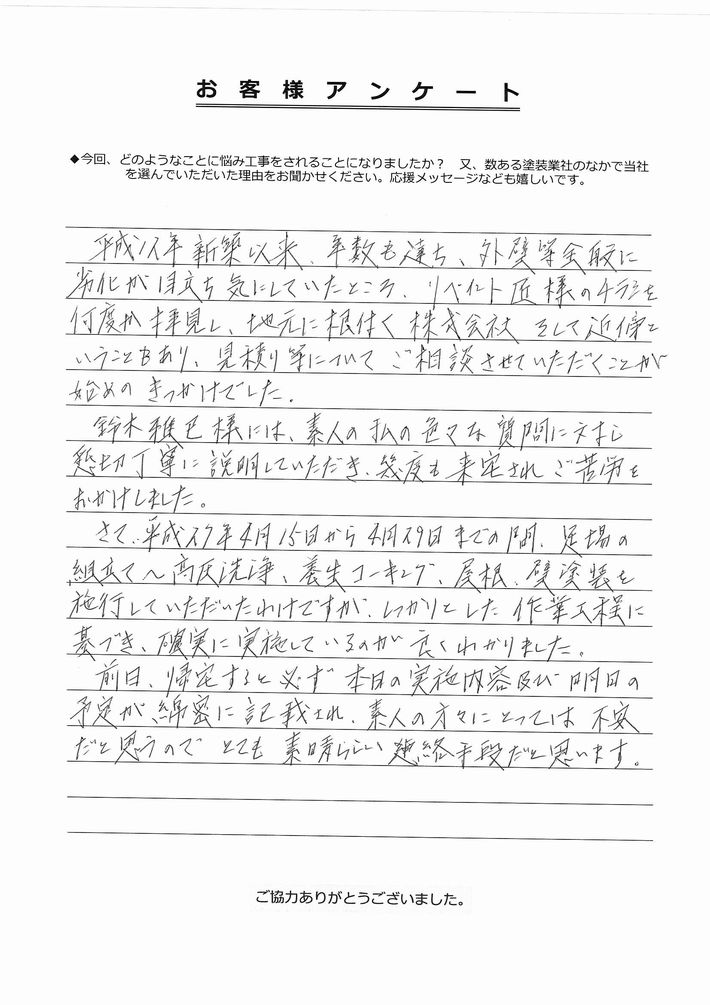 お客様アンケート
◆今回、どのようなことに悩み工事をされることになりましたか？　又、数ある塗装業社のなかで当社
を選んでいただいた理由をお聞かせください。応援メッセージなども嬉しいです。
平成 年新築以来、年数も達ち、外壁等全般に
劣化が目立ち気にしていたところ、リペイント匠様のチラシを
何度か拝見し、地元に根付く株式会社 そして近傍と
いうこともあり、見積り等について ご相談させていただくことが
始めの きっかけでした。
鈴木雅 様には、素人の私の色々な質問に対し
懇切丁寧に説明していただき、幾度も来宅され ご苦労を
おかけしました。
さて、平成27年4月15日から4月29日までの間、足場の
組立て〜高圧洗浄、養生コーキング、屋根、壁塗装を
施行していただいたわけですが、しっかりとした 作業工程に
基づき、確実に実施しているのが 良くわかりました。
前日、帰宅すると必ず 本日の実施内容及び 明日の
予定が 綿密に記載され、素人の方々にとっては 不安
だと思うので とても 素晴らしい 連絡手段だと思います。
ご協力ありがとうございました。